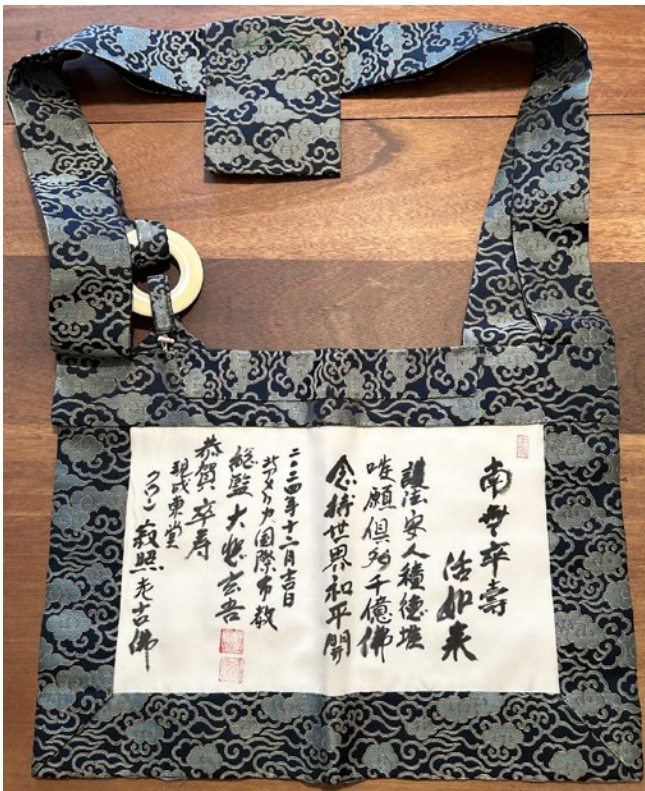 南無卒壽
活如来
護法安人積德堆
唯願俱胝千億佛
念持世界和平開
二〇二四年十二月吉日
南アメリカ国際布教
総監 大城玄吾
恭賀 卒寿
現成東堂
クロン 寂照 老古佛